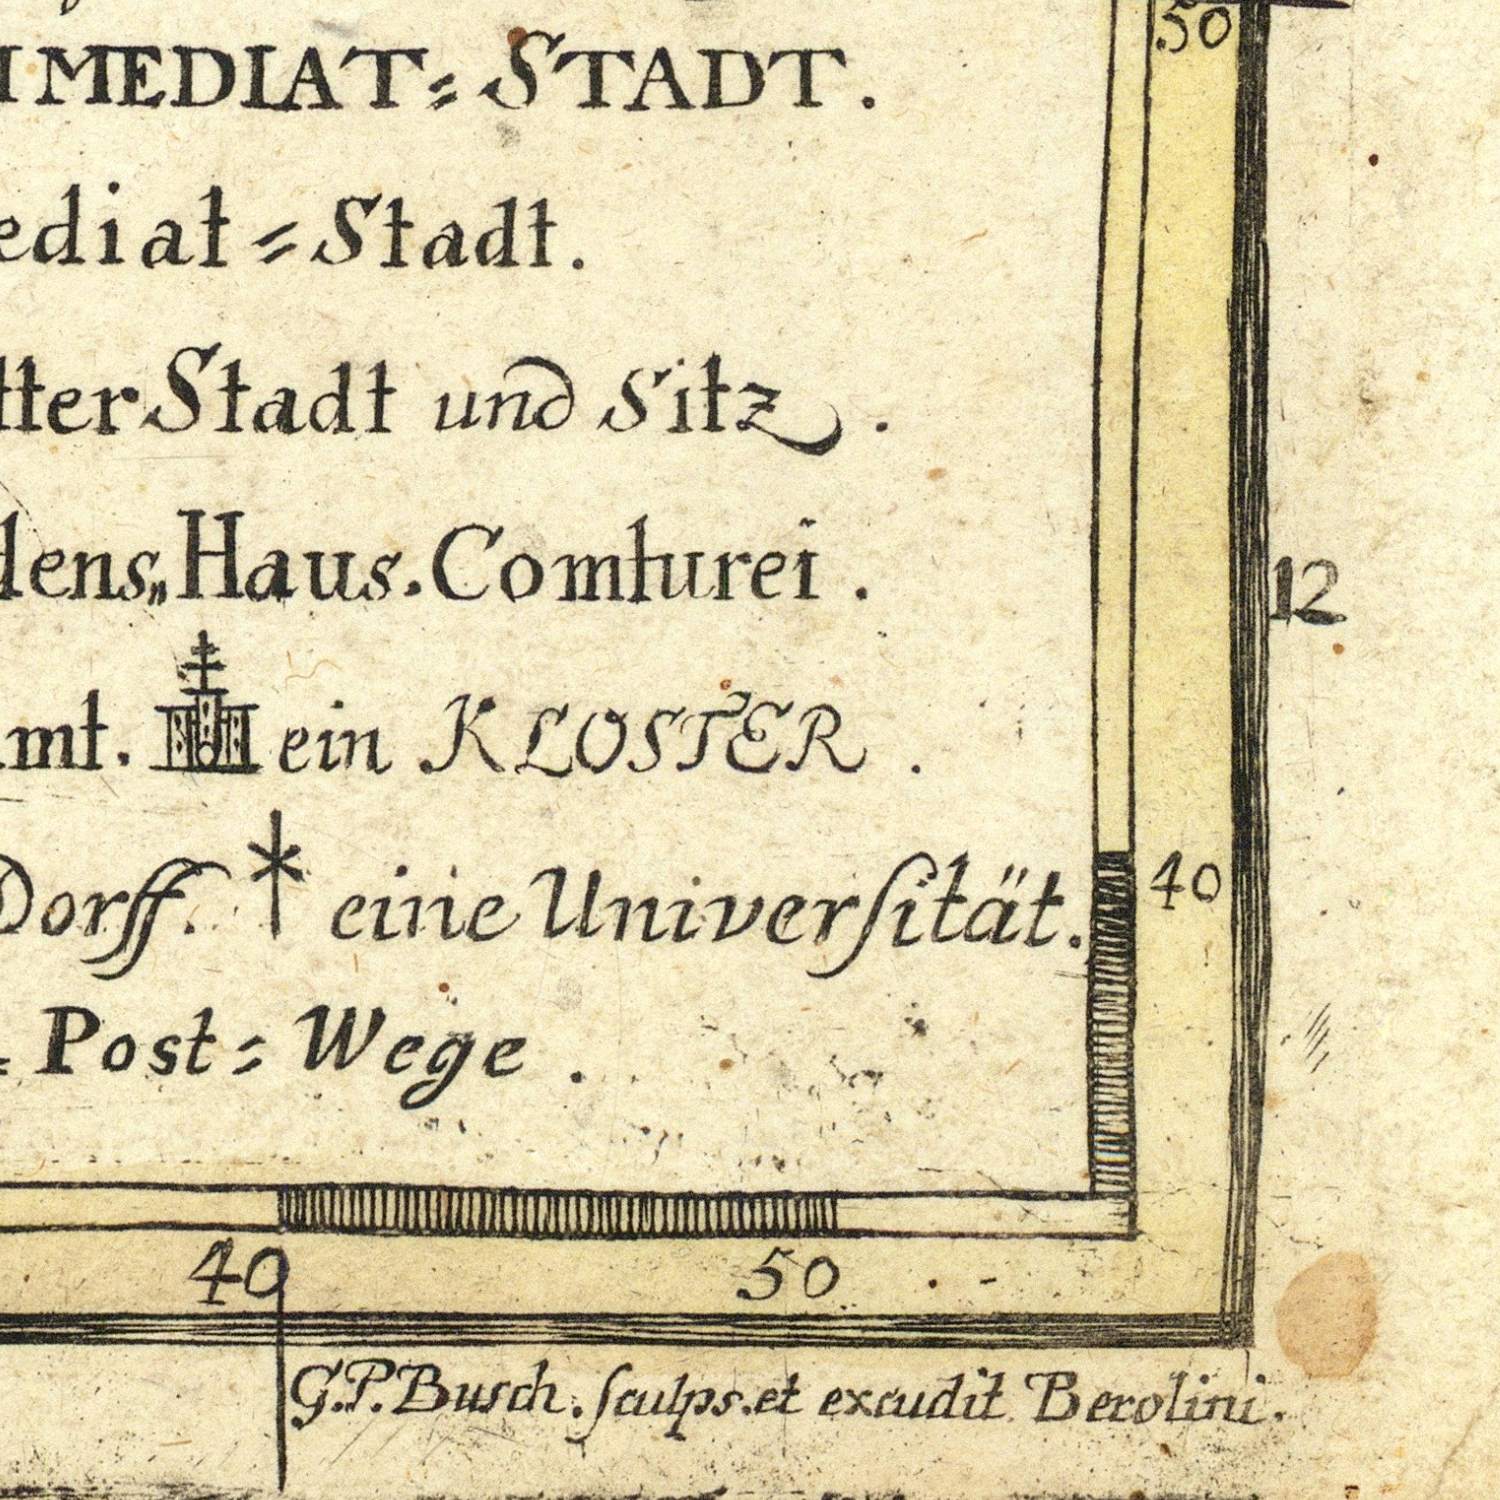 50
IMMEDIAT=STADT.
ediat=Stadt.
tter Stadt und Sitz.
dens„Haus. Comturei.
amt. ein KLOSTER.
12
Dorff. * eine Univerſität.
40
Post=Wege.
40 50
G.P.Busch. ſculps. et excudit Berolini.